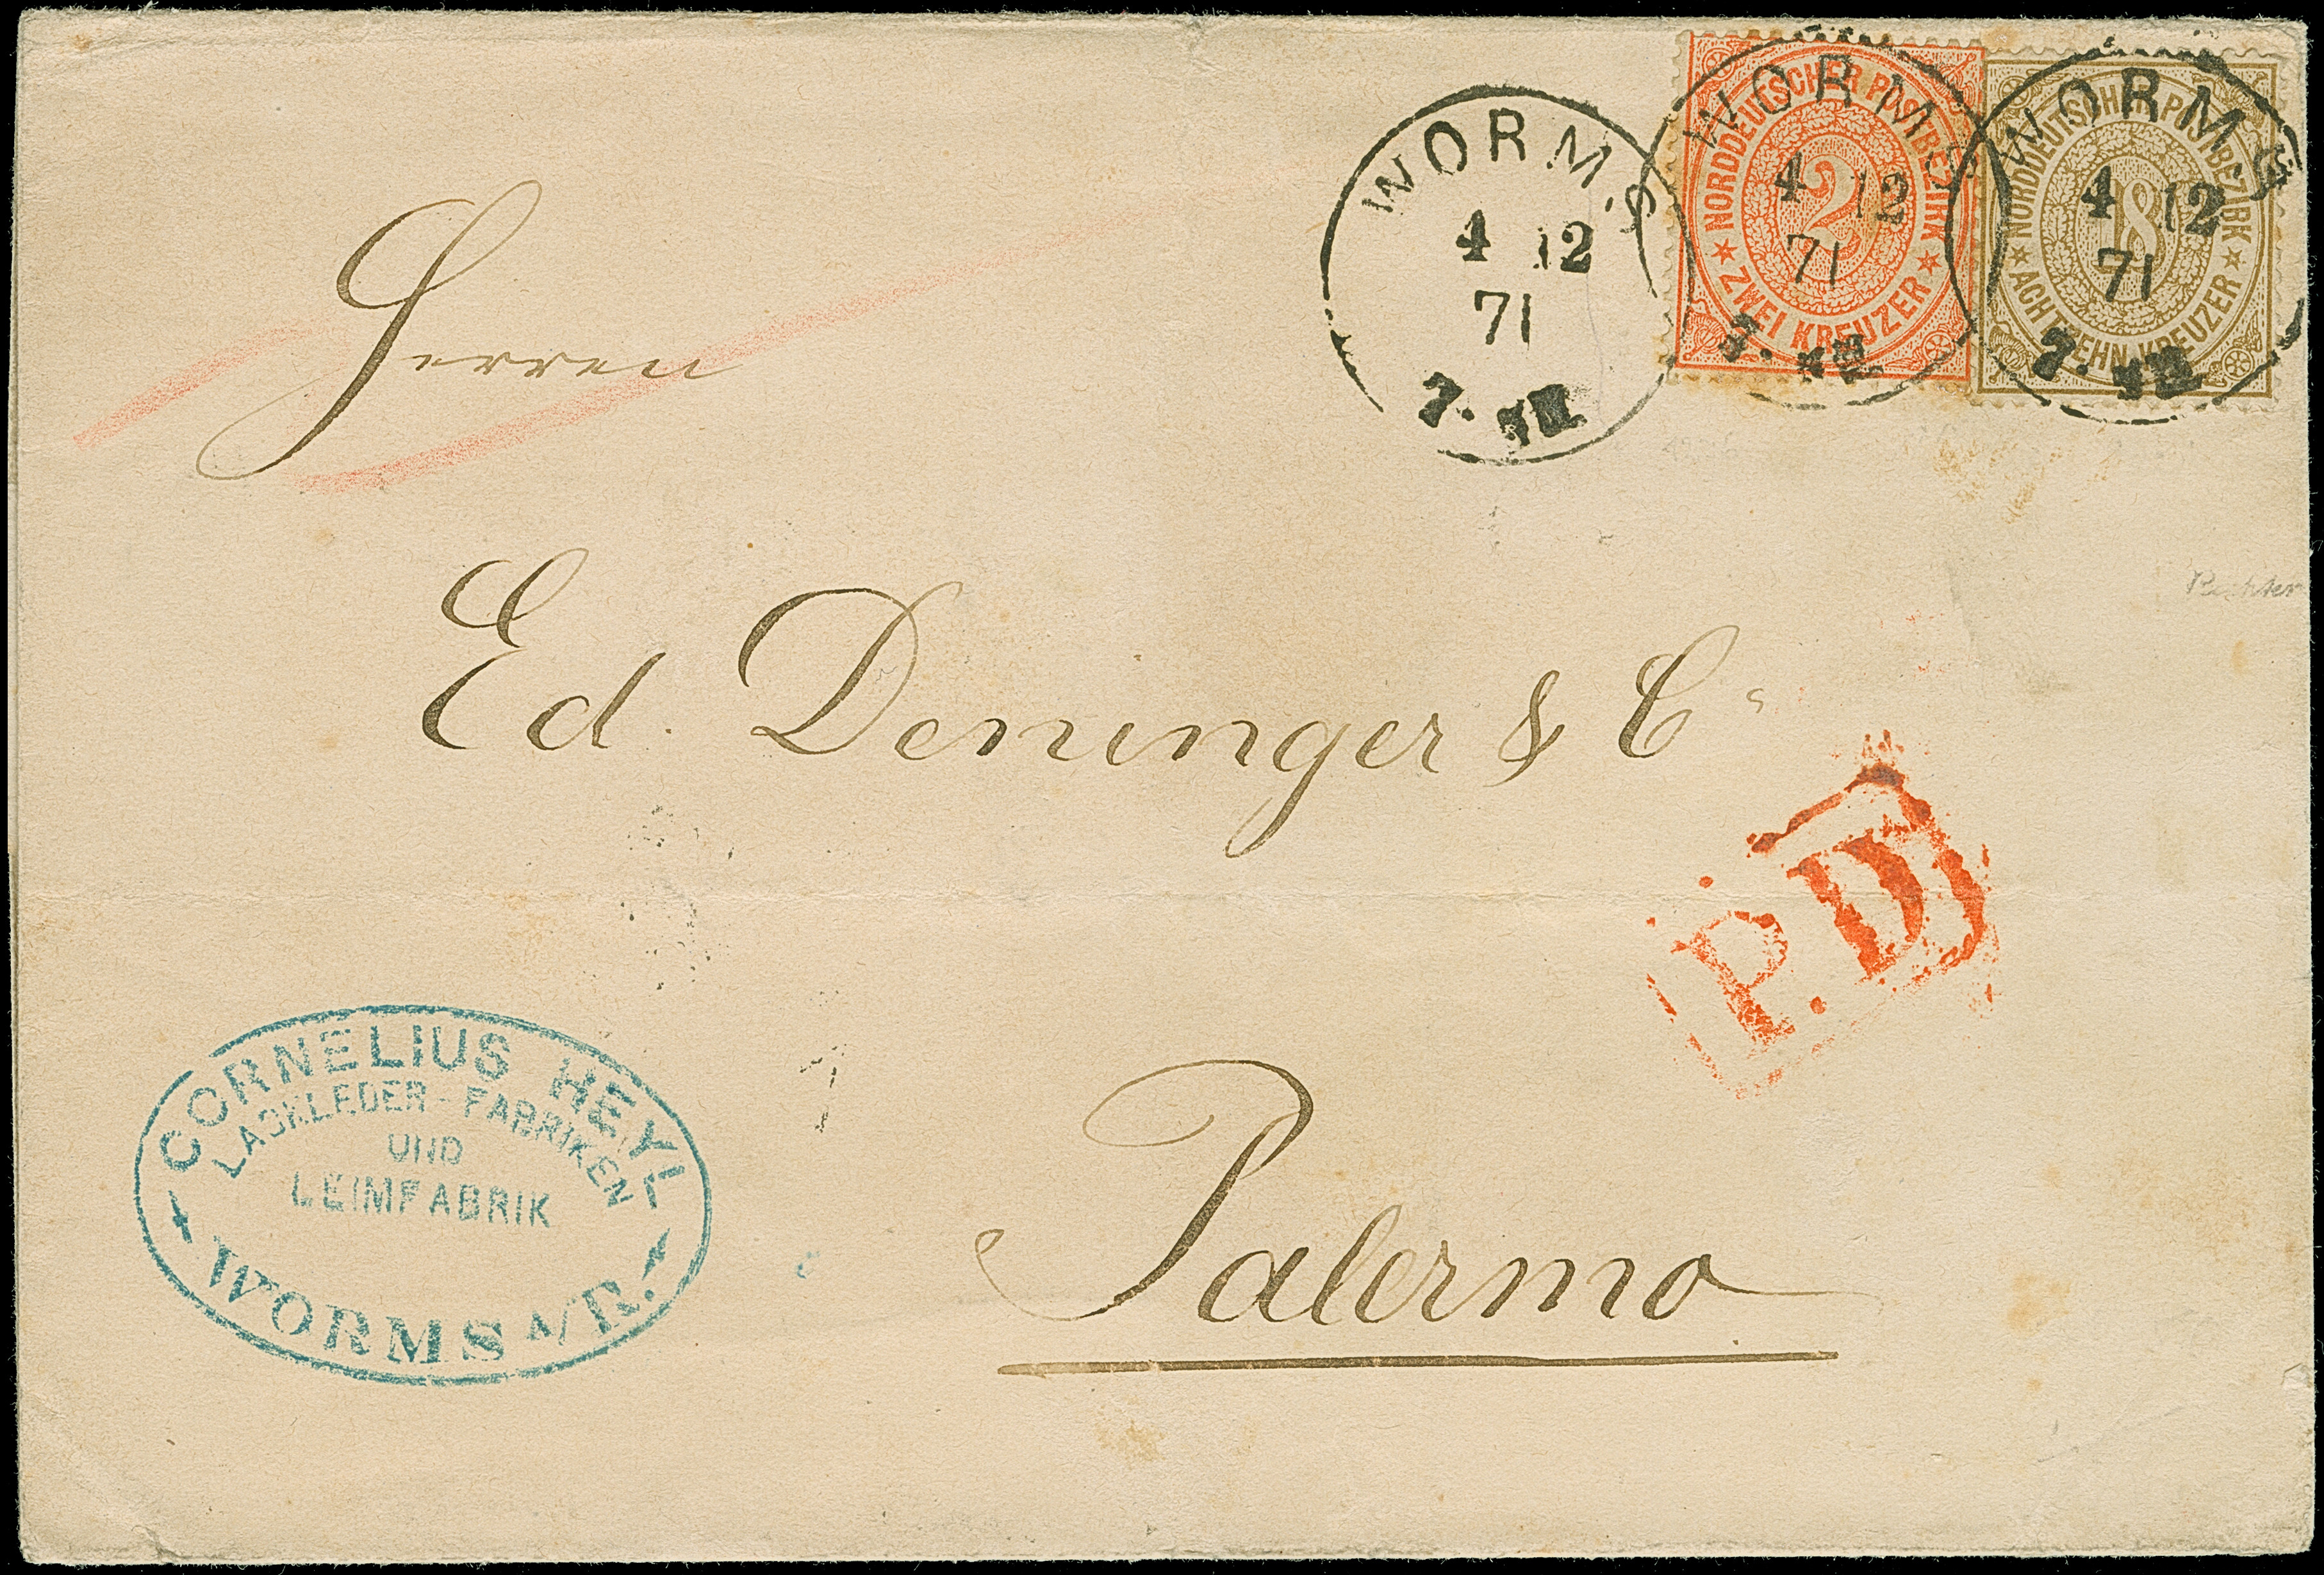 WORMS
4 12
71
WORMS
4 12
71
NORDDEUTSCHER POSTBEZIRK
2
ZWEI KREUZER
WORMS
4 12
71
NORDDEUTSCHER POSTBEZIRK
18
ACHTZEHN KREUZER
Herren
Ed. Deninger & C°
P.D
Palermo
CORNELIUS HEYL
LACKLEDER-FABRIKEN
UND
LEIMFABRIK
WORMS A/R.